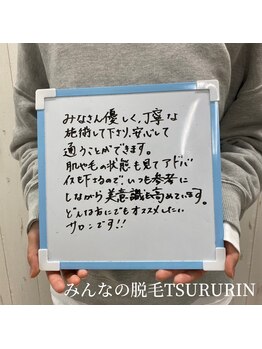 みなさん優しく、丁寧な
施術して下さり、安心して
通うことができます。
肌や毛の状態も見てアドバ
イスも下さるので、いつも参考に
しながら美意識を高めています。
どんな方にでもオススメしたい
サロンです!!
みんなの脱毛TSURURIN